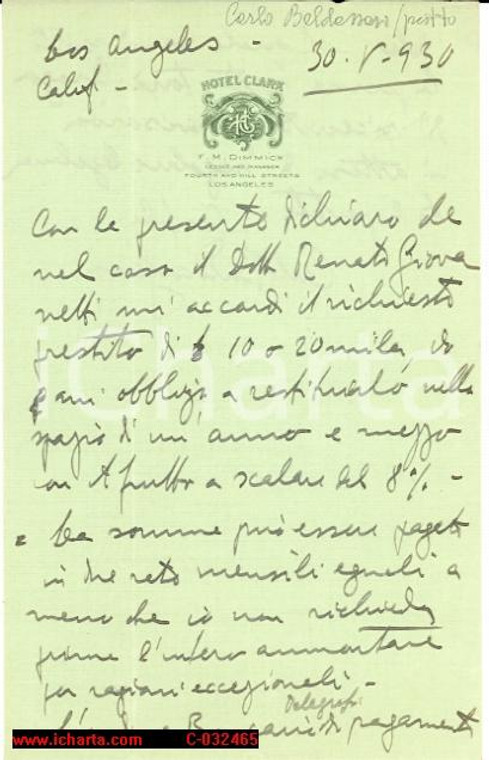 Carlo Baldassari / prestito
Los Angeles -
Calif -
30 · V - 930
HOTEL CLARK
F. M. DIMMICK
LESSEE AND MANAGER
FOURTH AND HILL STREETS
LOS ANGELES
Con la presente dichiaro che
nel caso il Dott Renato Giova
netti mi accordi il richiesto
prestito di $ 10 o 20 mila, io
mi obbligo a restituirlo nello
spazio di un anno e mezzo
con frutto a scalare del 8% -
= La somma può essere pagata
in tre rate mensili eguali a
meno che io non richieda
prima l'intero ammontare
per ragioni eccezionali -
telegrafi
di pagamenti
iCharta
www.icharta.com C-032465